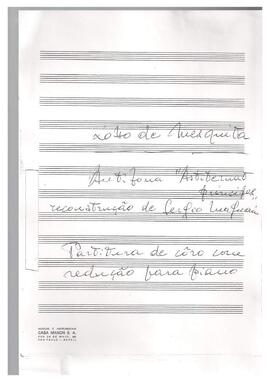 Lobo de Mesquita
Antifona "Astiterunt
principes"
reconstrução de Sergio Magnani
Partitura de côro com
redução para piano
MUSICAS E INSTRUMENTOS
CASA MANON S. A.
RUA 24 DE MAIO, 242
SÃO PAULO - BRASIL